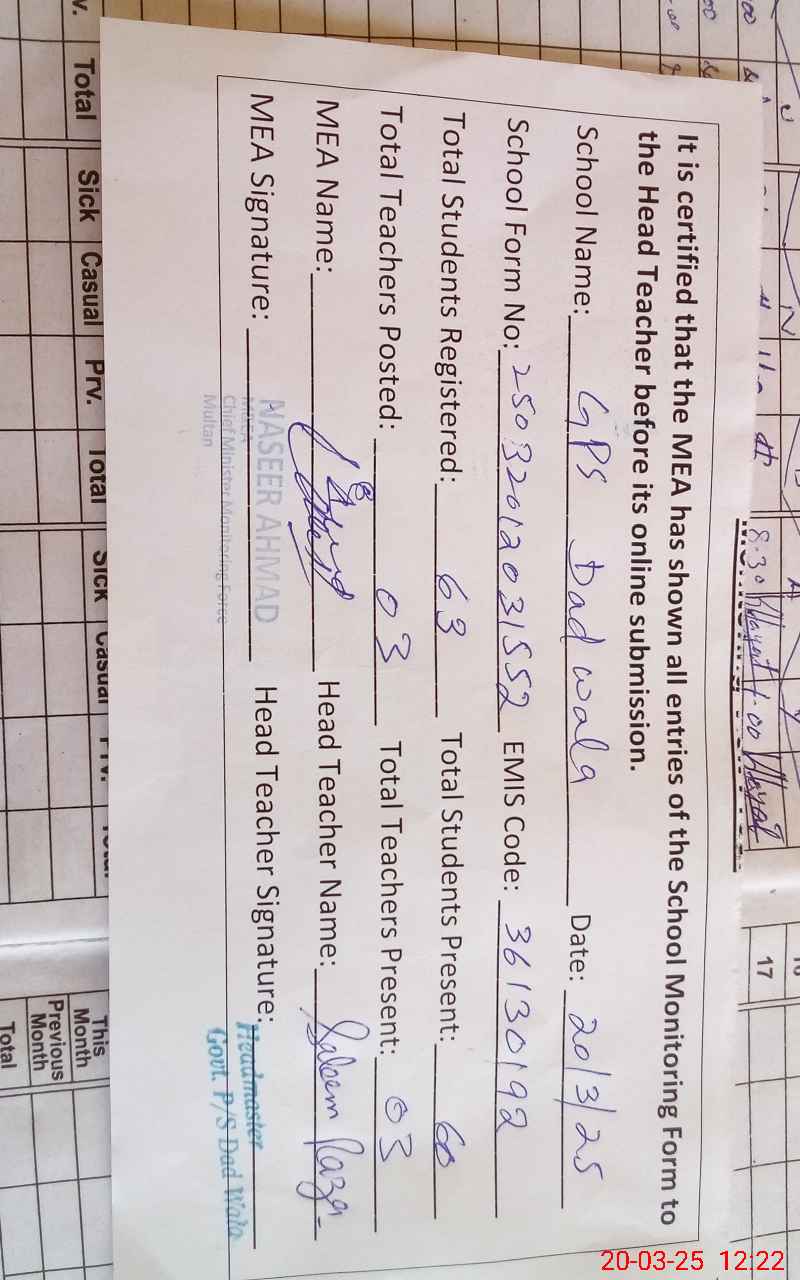 It is certified that the MEA has shown all entries of the School Monitoring Form to
the Head Teacher before its online submission.
School Name: GPS Dad wala Date: 20/3/25
School Form No: 25032012031552 EMIS Code: 36130192
Total Students Registered: 63 Total Students Present: 60
Total Teachers Posted: 03 Total Teachers Present: 03
MEA Name: Head Teacher Name: Saleem Raza
MEA Signature: Head Teacher Signature:
NASEER AHMAD
MEA
Chief Minister Monitoring Force
Multan
Headmaster
Govt. P/S Dad Wala
v. Total Sick Casual Prv. Total Sick Casual Prv. Total
8:30 1:00
17
This Month
Previous Month
Total
20-03-25 12:22